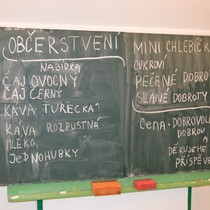 OBČERSTVENÍ
NABÍDKA
ČAJ OVOCNÝ
ČAJ ČERNÝ
KÁVA TURECKÁ
KÁVA ROZPUSTNÁ
MLÉKO
JEDNOHUBKY
MINI CHLEBÍČK
CUKROVÍ
PEČENÉ DOBRO
SLANÉ DOBROTY
CENA: DOBROVOL
DOBROU
DĚKUJEME
PŘÍSPĚVE